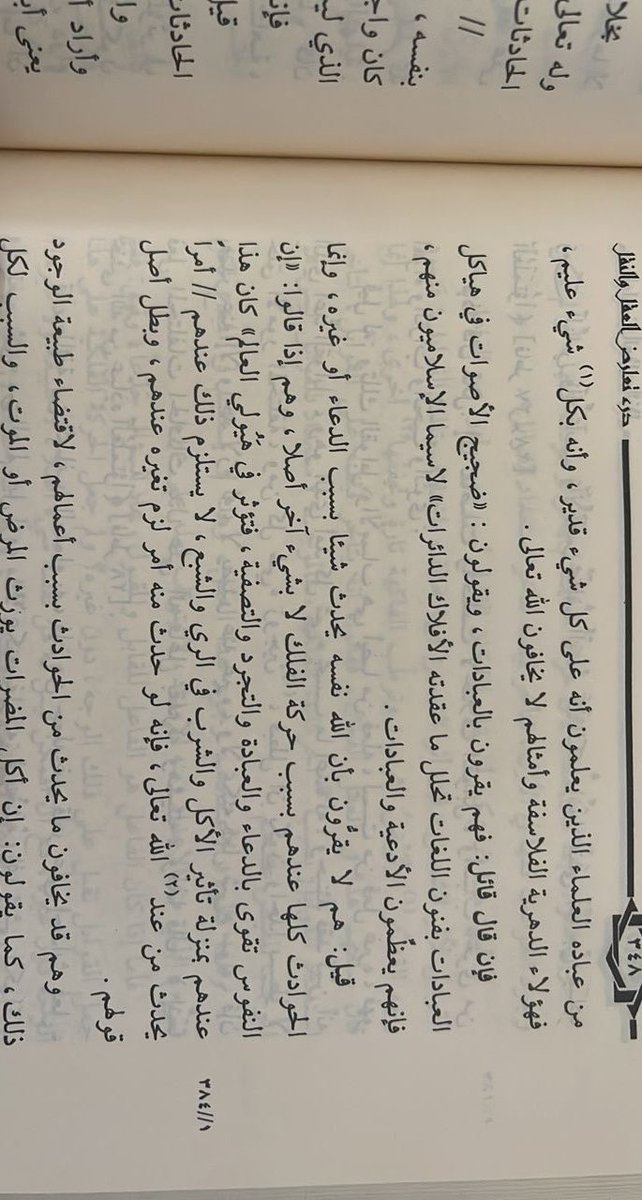 درء تعارض العقل والنقل
٣٤٨
من عباده العلماء الذين يعلمون أنه على كل شيء قدير، وأنه بكل (١) شيء عليم،
فهؤلاء الدهرية الفلاسفة وأمثالهم لا يخافون الله تعالى.
فإن قال قائل: فهم يقرون بالعبادات، ويقولون: «ضجيج الأصوات في هياكل
العبادات بفنون اللغات تحلل ما عقدته الأفلاك الدائرات» لاسيما الإسلاميون منهم،
فإنهم يعظّمون الأدعية والعبادات.
قيل: هم لا يقرُّون بأن الله نفسه يحدث شيئا بسبب الدعاء أو غيره، وإنما
الحوادث كلها عندهم بسبب حركة الفلك لا بشيء آخر أصلا، وهم إذا قالوا: «إن
النفوس تقوى بالدعاء والعبادة والتجرد والتصفية، فتؤثر في هَيُولي العالم» كان هذا
عندهم بمنزلة تأثير الأكل والشرب في الري والشبع، لا يستلزم ذلك عندهم // أمراً
٣٨٤//١
يحدث من عند (٢) الله تعالى، فإنه لو حدث منه أمر لزم تغيره عندهم، وبطل أصل
قولهم.
وهم قد يخافون ما يحدث من الحوادث بسبب أعمالهم، لاقتضاء طبيعة الوجود
ذلك، كما يقولون: إن أكل المضرات يورث المرض أو الموت، والسبب لكل
وله تعالى
الحادثات
//
بنفسه،
كان واجـ
الذي ليـ
فإنـ
الحادثات
وا
وأراد أ
يعني أنـ